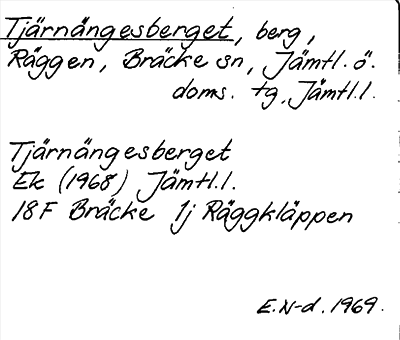 Tjärnängesberget, berg,
Räggen, Bräcke sn, Jämtl. ö.
doms. tg, Jämtl.l.
Tjärnängesberget
Ek (1968) Jämtl.l.
18F Bräcke 1j Räggkläppen
E.N-d. 1969.